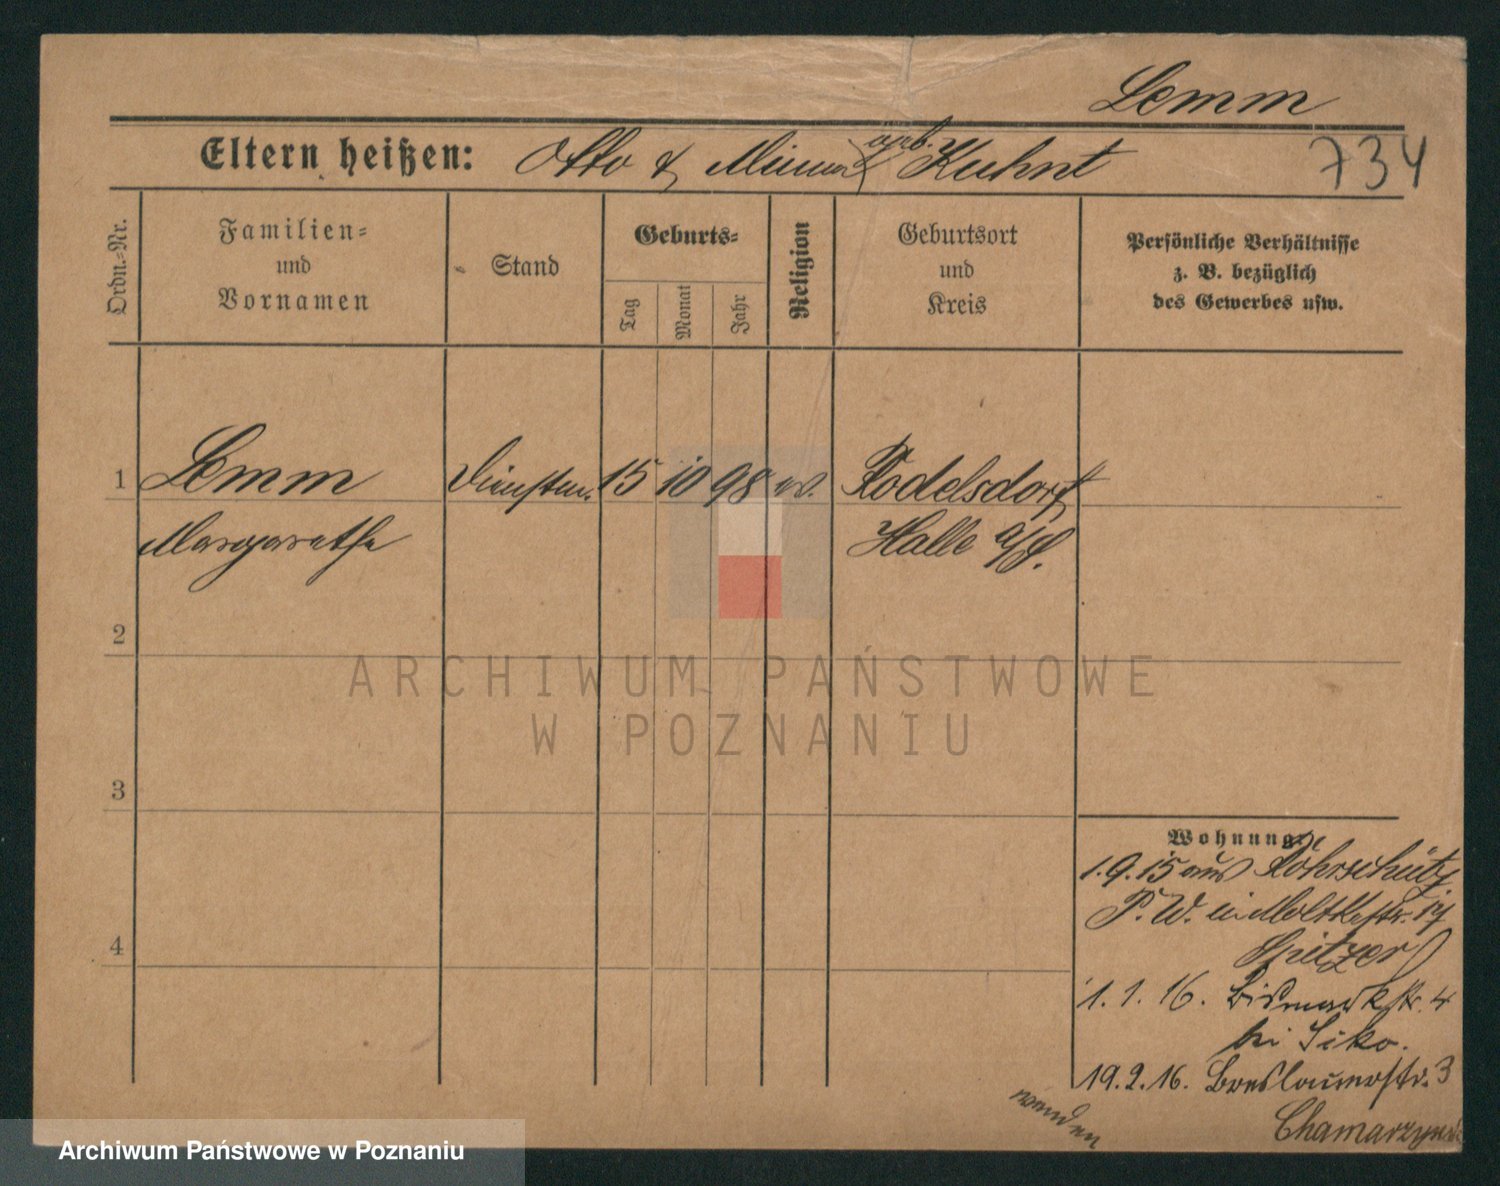 Lemm
Eltern heißen: Otto & Minna geb. Kuhnt
734
Ordn.=Nr.
Familien=
und
Vornamen
Stand
Geburts=
Tag
Monat
Jahr
Religion
Geburtsort
und
Kreis
Persönliche Verhältnisse
z. B. bezüglich
des Gewerbes usw.
1 Lemm Dienstm. 15 10 98 ev. Rodelsdorf
Margarethe Halle a/S.
2
3
4
Wohnung:
1.9.15 aus Röhrschütz
P. W. in Moltkestr.
Spitzer
1.1.16. Bismarckstr. 4
bei Siko.
19.2.16. Breslauerstr. 3
wenden
ARCHIWUM PAŃSTWOWE
W POZNANIU
Archiwum Państwowe w Poznaniu